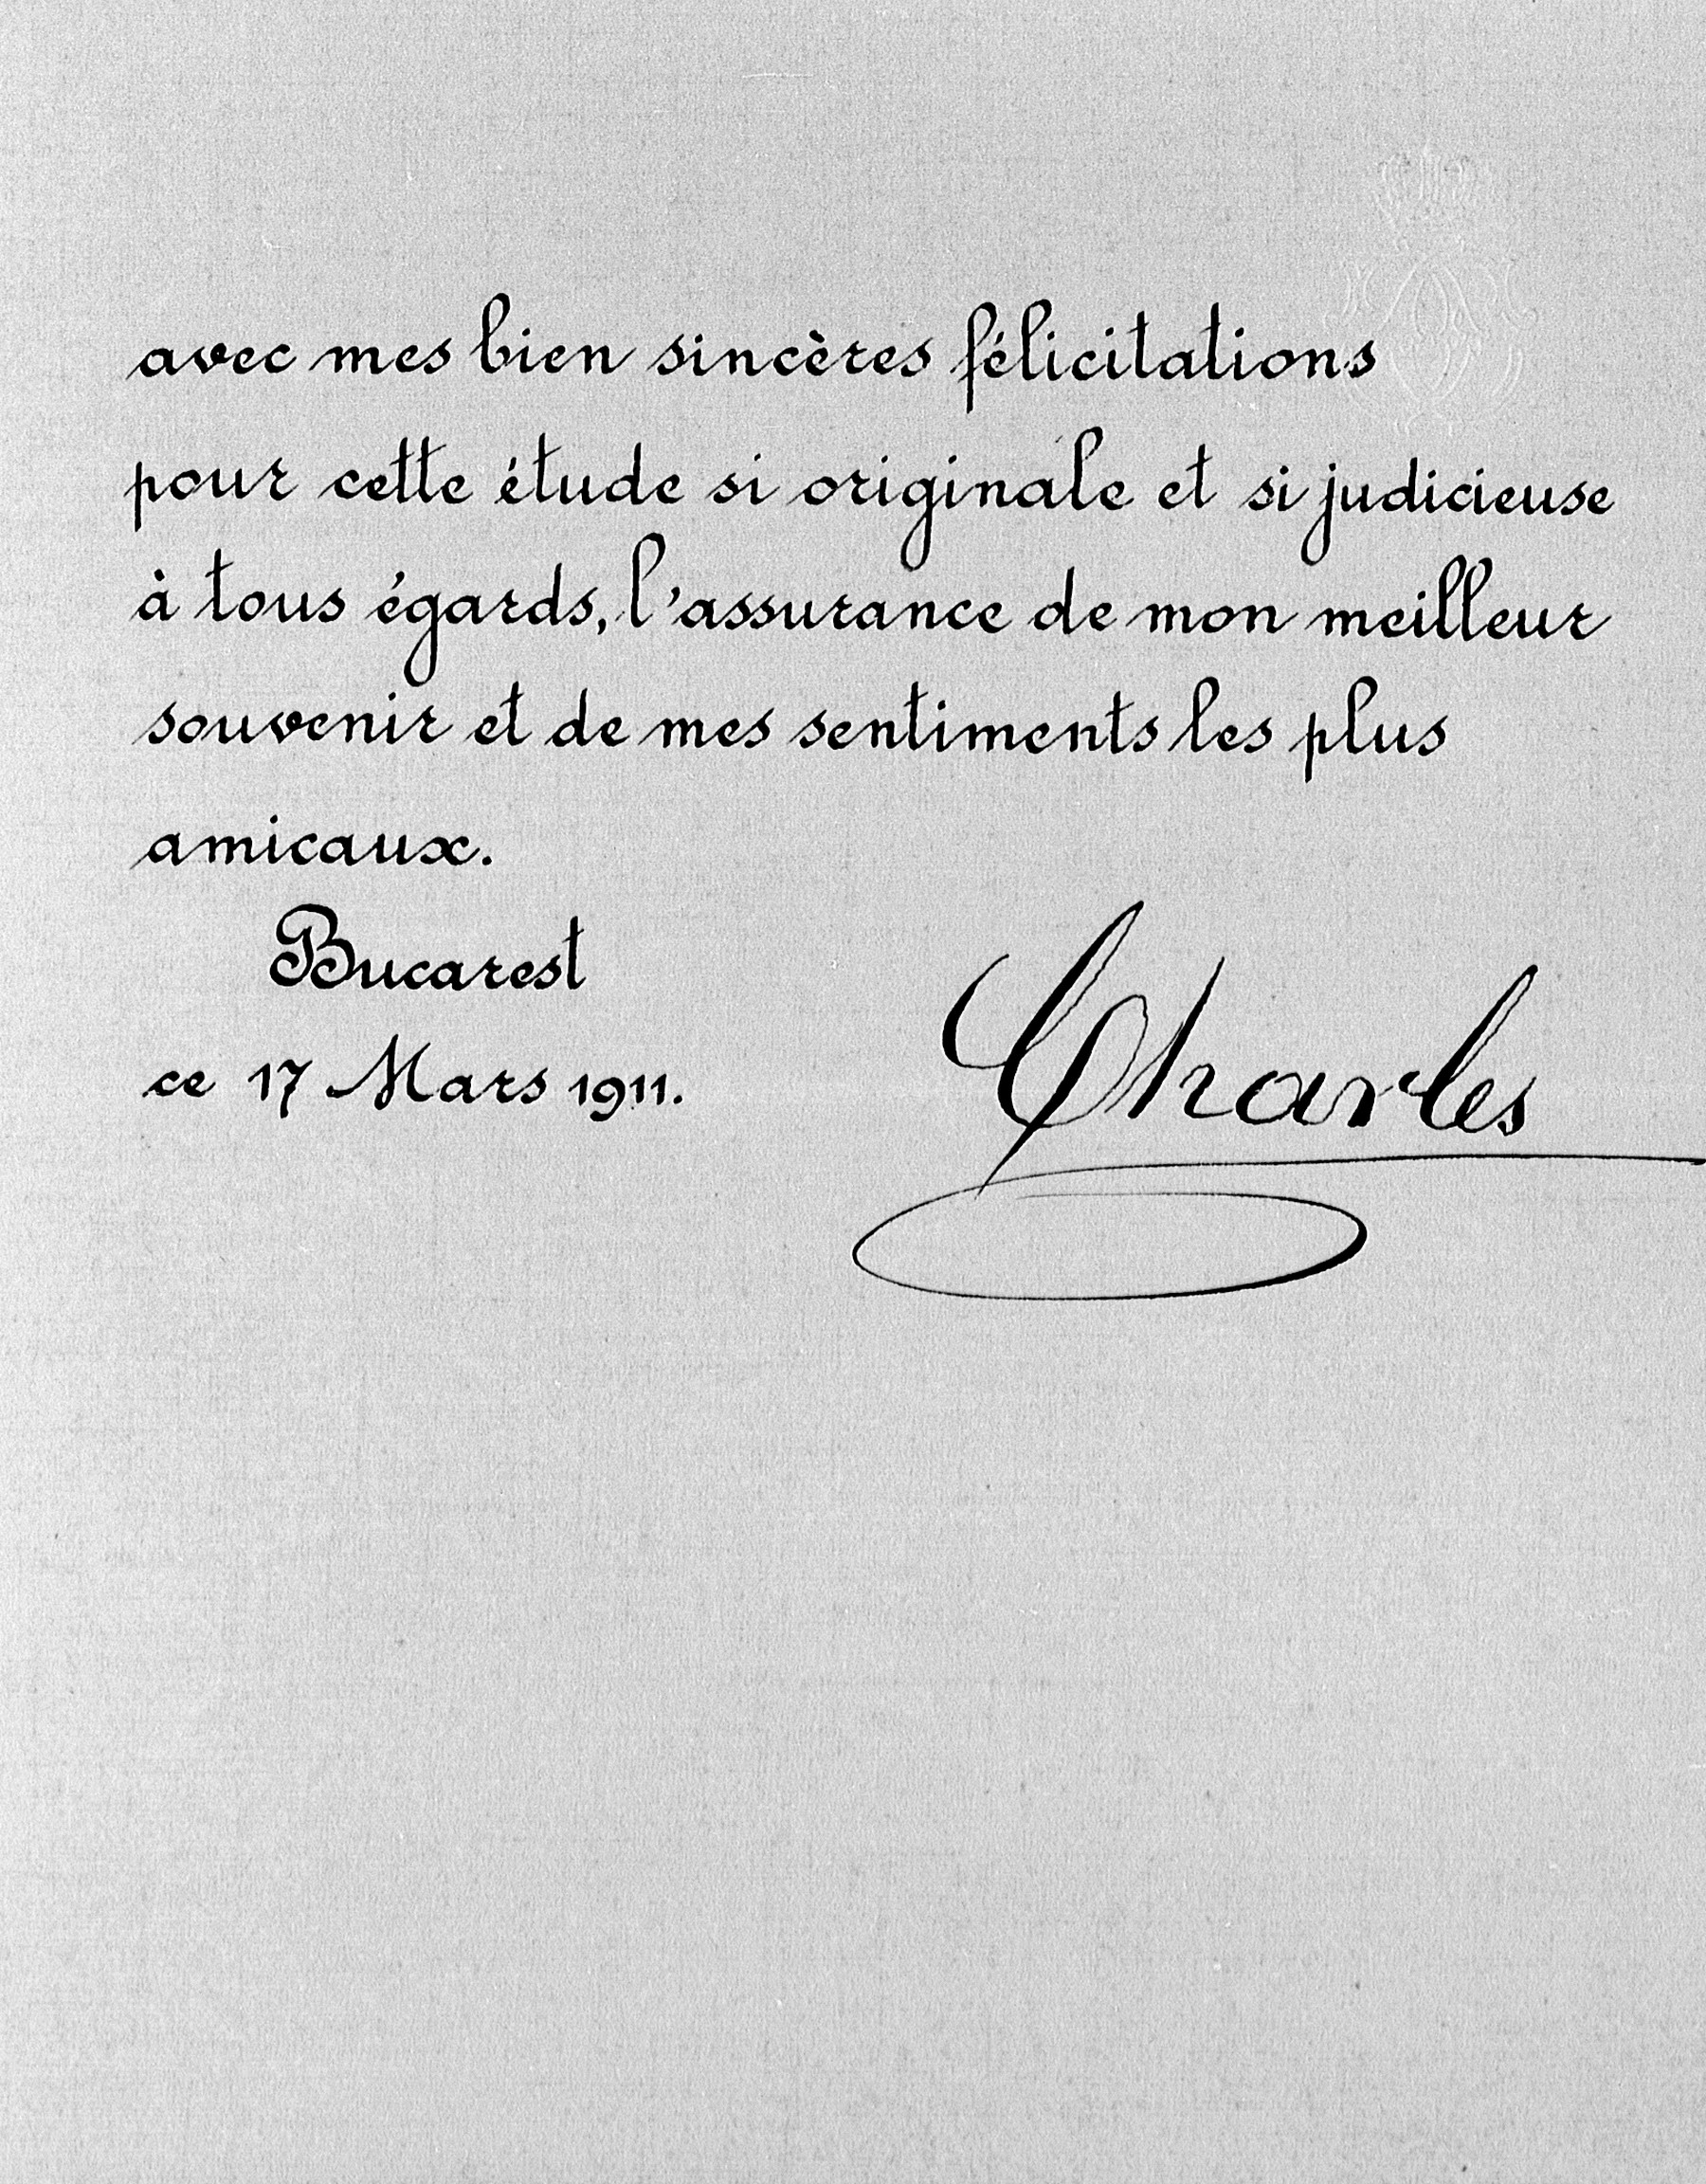 avec mes bien sincères félicitations
pour cette étude si originale et si judicieuse
à tous égards, l'assurance de mon meilleur
souvenir et de mes sentiments les plus
amicaux.
Bucarest
ce 17 Mars 1911.
Charles